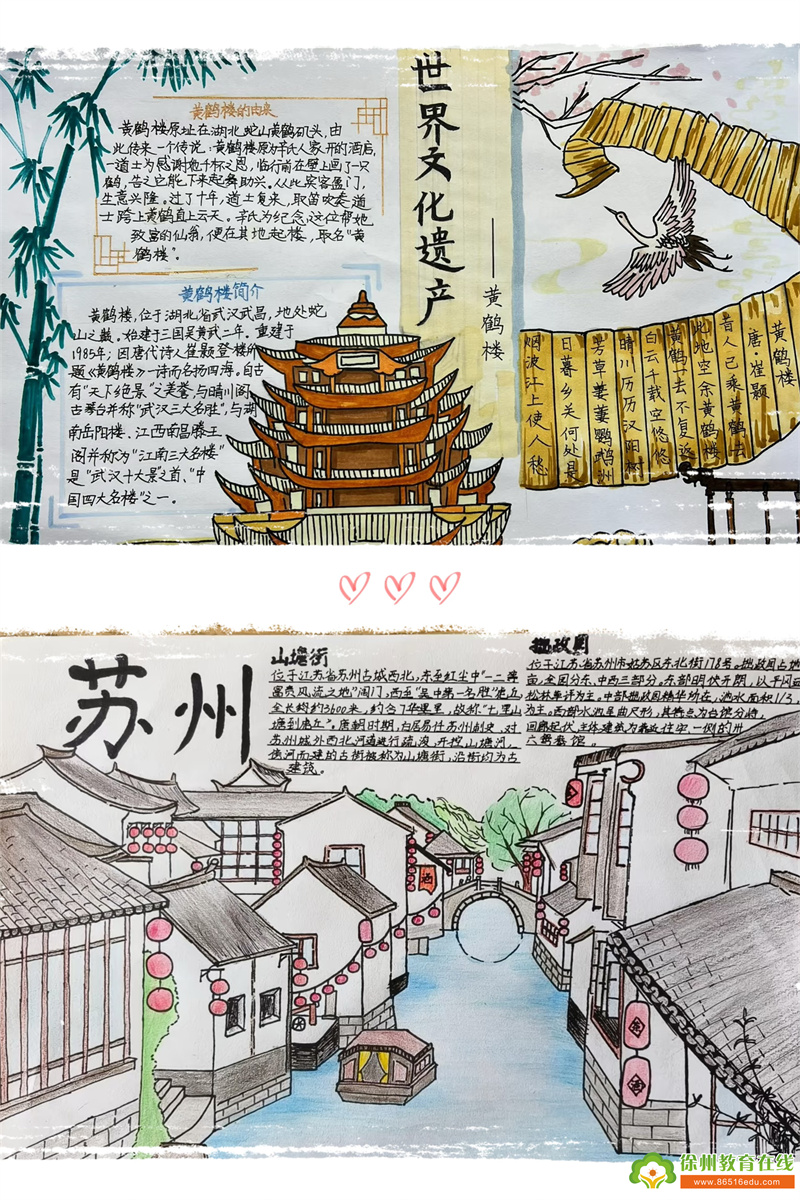 世界文化遗产
——黄鹤楼
黄鹤楼的由来
黄鹤楼原址在湖北蛇山黄鹤矶头,由
此传来一个传说:黄鹤楼原为辛氏人家开的酒店,
一道士为感谢她千杯之恩,临行前在壁上画了一只
鹤,告之它能下来起舞助兴。从此宾客盈门,
生意兴隆。过了十年,道士复来,取笛吹奏,道
士跨上黄鹤直上云天。辛氏为纪念这位帮她
致富的仙翁,便在其地起楼,取名“黄
鹤楼”。
黄鹤楼简介
黄鹤楼,位于湖北省武汉武昌,地处蛇
山之巅。始建于三国吴黄武二年。重建于
1985年;因唐代诗人崔颢登楼所
题《黄鹤楼》一诗而名扬四海。自古
有“天下绝景”之美誉,与晴川阁、
古琴台并称“武汉三大名胜”,与湖
南岳阳楼、江西南昌滕王
阁并称为“江南三大名楼”
是“武汉十大景”之首、“中
国四大名楼”之一。
黄鹤楼
唐·崔颢
昔人已乘黄鹤去
此地空余黄鹤楼
黄鹤一去不复返
白云千载空悠悠
晴川历历汉阳树
芳草萋萋鹦鹉洲
日暮乡关何处是
烟波江上使人愁
苏州
山塘街
位于江苏省苏州古城西北,东至红尘中“一二等
富贵风流之地”阊门,西至“吴中第一名胜”虎丘
全长约3600米,约合7华里,故称“七里山
塘到虎丘”。唐朝时期,白居易任苏州刺史,对
苏州城外西北河道进行疏浚,开挖山塘河,
傍河而建的古街被称为山塘街,沿街均为古
建筑。
拙政园
位于江苏省苏州市姑苏区东北街178号。拙政园占地
亩,全园分东、中西三部分,东部明快开朗,以平冈
为主。中部拙政园精华所在,池水面积1/3,
为主。西部水池呈曲尺形,其特点为台馆分峙,
回廊起伏,主体建筑为靠近住宅一侧的卅
六鸳鸯馆。
酒
徐州教育在线
www.86516edu.com